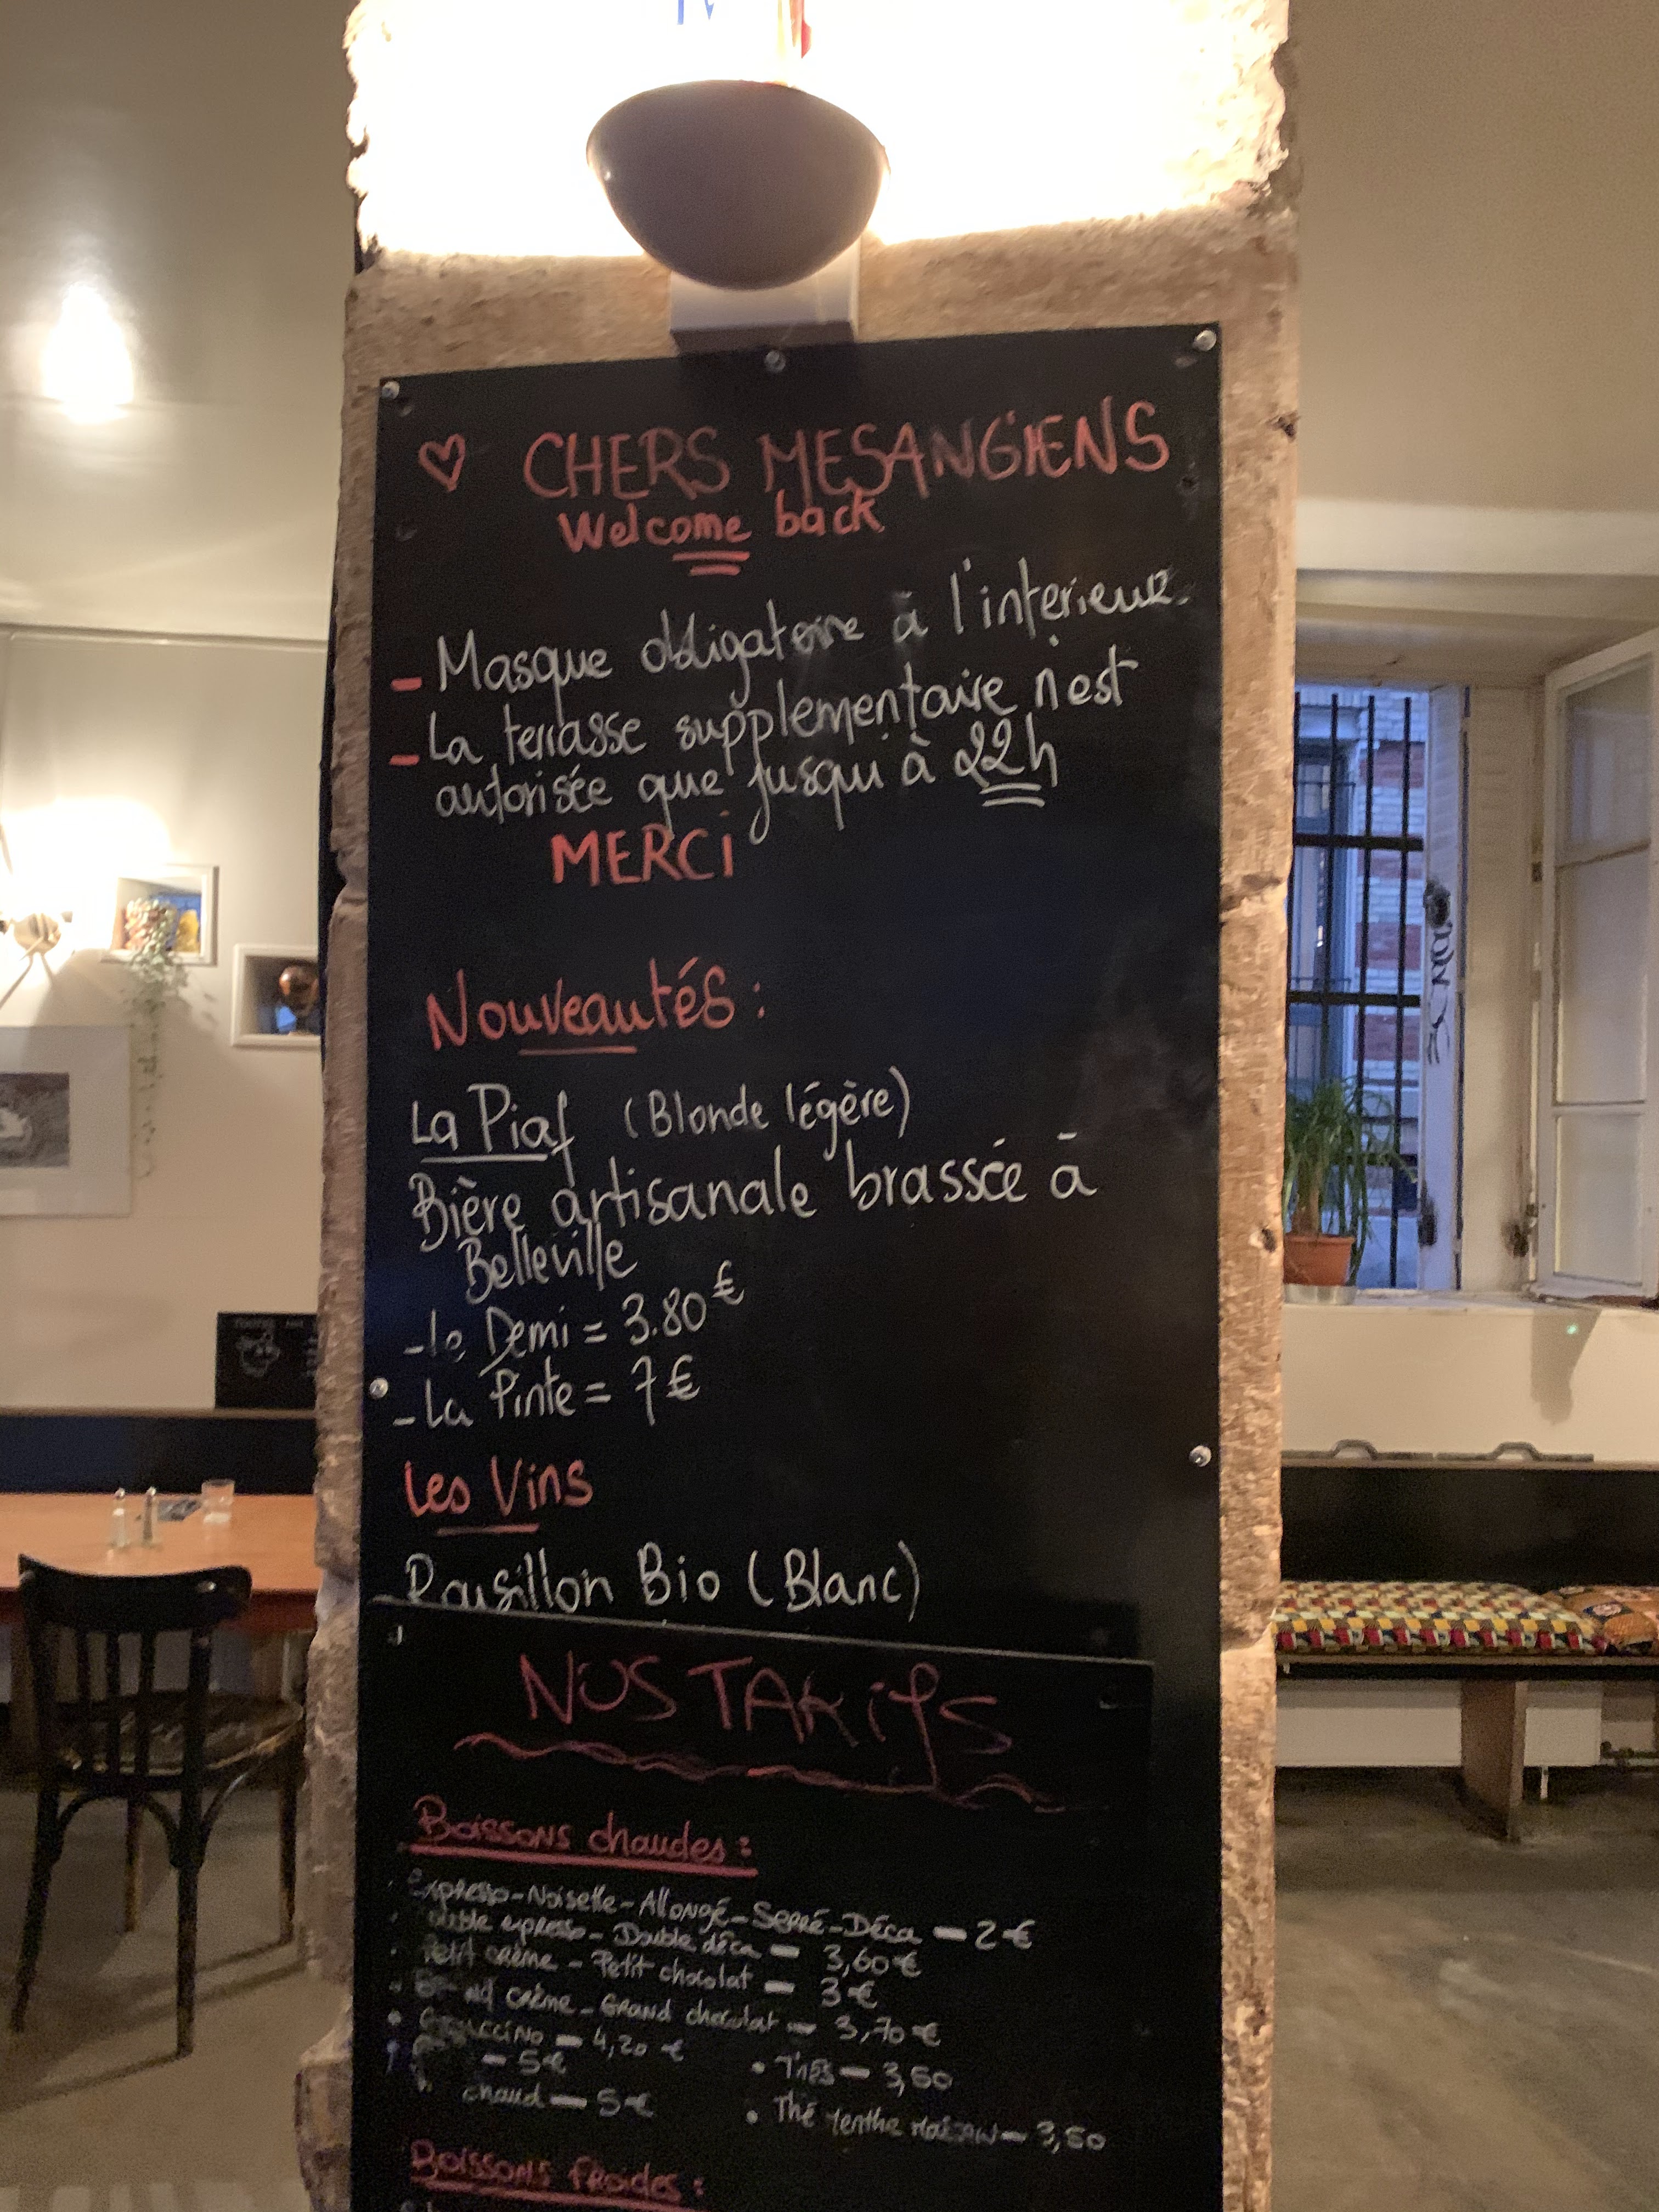 ♡ CHERS MESANGIENS
Welcome back
- Masque obligatoire à l'interieur.
- La terrasse supplementaire n'est
autorisée que jusqu'à 22h
MERCi
Nouveautés :
La Piaf (Blonde légère)
Bière artisanale brassée à
Belleville
- le Demi = 3.80€
- La Pinte = 7€
Les Vins
Rousillon Bio (Blanc)
NOS TARifS
Boissons chaudes :
Expresso - Noisette - Allongé - Serré - Déca - 2€
expresso - Double déca - 3,60€
Petit crème - Petit chocolat - 3€
crème - Grand chocolat - 3,70€
- 4,20€
- 5€
• THés - 3,50
chaud - 5€
• Thé menthe maison - 3,50
Boissons froides :